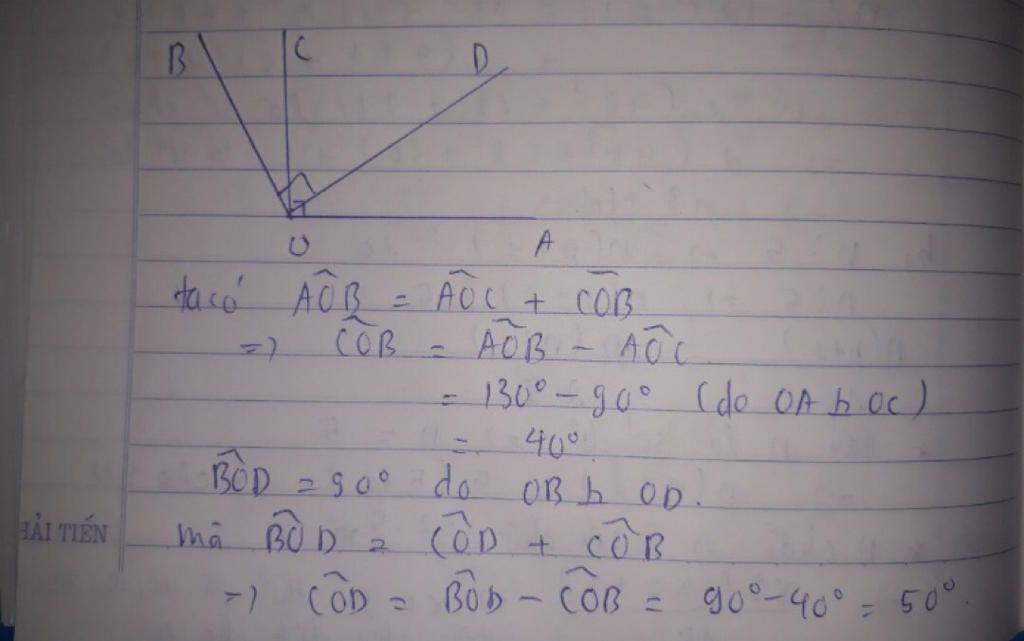 B C D
O A
ta có AÔB = AÔC + CÔB
=> CÔB = AÔB - AÔC
= 130° - 90° (do OA h OC)
= 40°.
BÔD = 90° do OB h OD.
HẢI TIẾN
mà BÔD = CÔD + CÔB
=> CÔD = BÔD - CÔB = 90° - 40° = 50°.